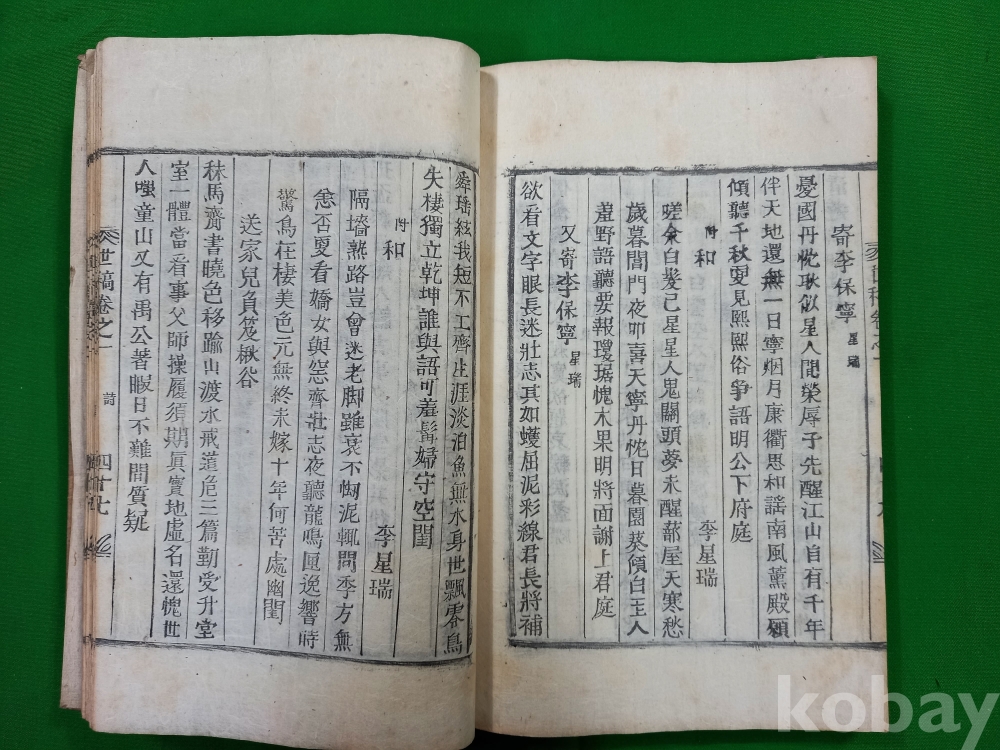 寄李保寧 星瑞
憂國丹忱耿似星人間榮辱子先醒江山自有千年
伴天地還無一日寧烟月康衢思和謠南風薰殿願
傾聽千秋更見熙熙俗爭語明公下府庭
附和 李星瑞
嗟余白髮已星星人鬼關頭夢未醒蔀屋天寒愁
歲暮閶門夜卯喜天寧丹忱日暮園葵傾白主人
羞野語聽要報瓊琚愧木果明將面謝上君庭
又寄李保寧 星瑞
欲看文字眼長迷壯志其如蠖屈泥彩線君長將補
舜瑤絃我短不工齊生涯淡泊魚無水身世飄零鳥
失棲獨立乾坤誰與語可羞髯婦守空閨
附和 李星瑞
隔墻熟路豈曾迷老脚雖衰不怐泥輒問季方無
恙否夏看嬌女與窓齊壯志夜聽龍鳴匣逸響時
驚鳥在棲美色元無終未嫁十年何苦處幽閨
送家兒負笈楸谷
秣馬齎書曉色移踰山渡水戒蘧危三篇勤受升堂
室一體當看事父師操履須期眞實地虛名還愧世
人嗤童山又有禹公著暇日不難問質疑
世稿卷之一 詩 四十九
kobay